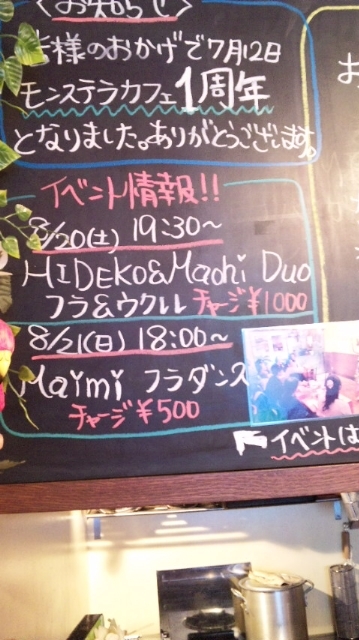 <お知らせ>
皆様のおかげで7月12日
モンステラカフェ1周年
となりました。ありがとうございます。
イベント情報!!
8/20(土) 19:30〜
HIDEKO&Machi Duo
フラ&ウクレレ チャージ¥1000
8/21(日) 18:00〜
Maimi フラダンス
チャージ¥500
イベントは
お